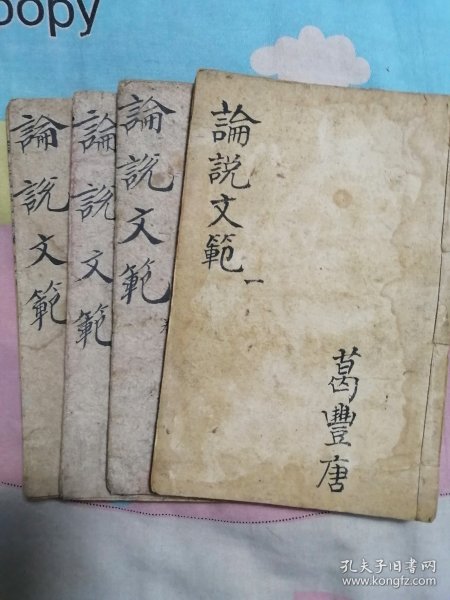 oopy
論說文範
論說文範
論說文範
論說文範一
葛豐唐
孔夫子旧书网
www.kongfz.com